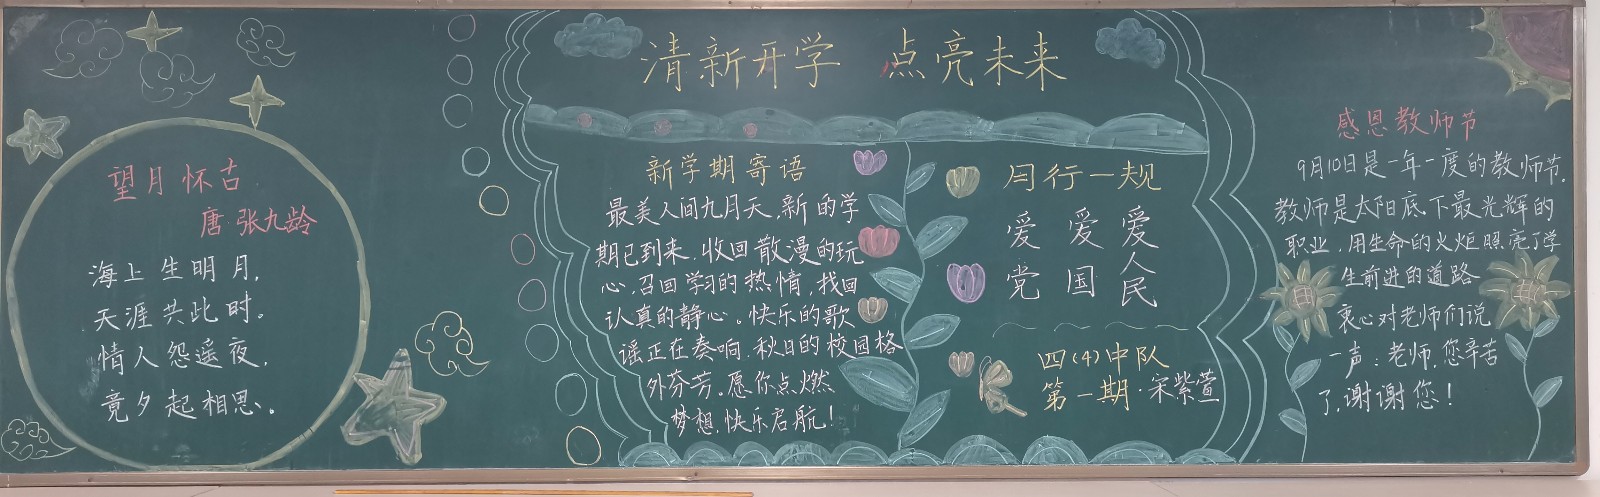 清新开学 点亮未来
望月怀古
唐·张九龄
海上生明月,
天涯共此时。
情人怨遥夜,
竟夕起相思。
新学期寄语
最美人间九月天,新的学
期已到来,收回散漫的玩
心,召回学习的热情,找回
认真的静心。快乐的歌
谣正在奏响,秋日的校园格
外芬芳。愿你点燃
梦想,快乐启航!
月行一规
爱 爱 爱
党 国 人民
四(4)中队
第一期·宋紫萱
感恩教师节
9月10日是一年一度的教师节,
教师是太阳底下最光辉的
职业,用生命的火炬照亮了学
生前进的道路
衷心对老师们说
一声:老师,您辛苦
了,谢谢您!